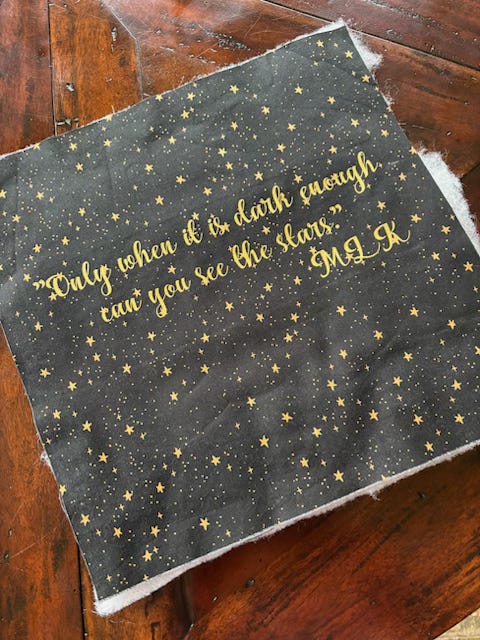 "Only when it is dark enough
can you see the stars."
MLK